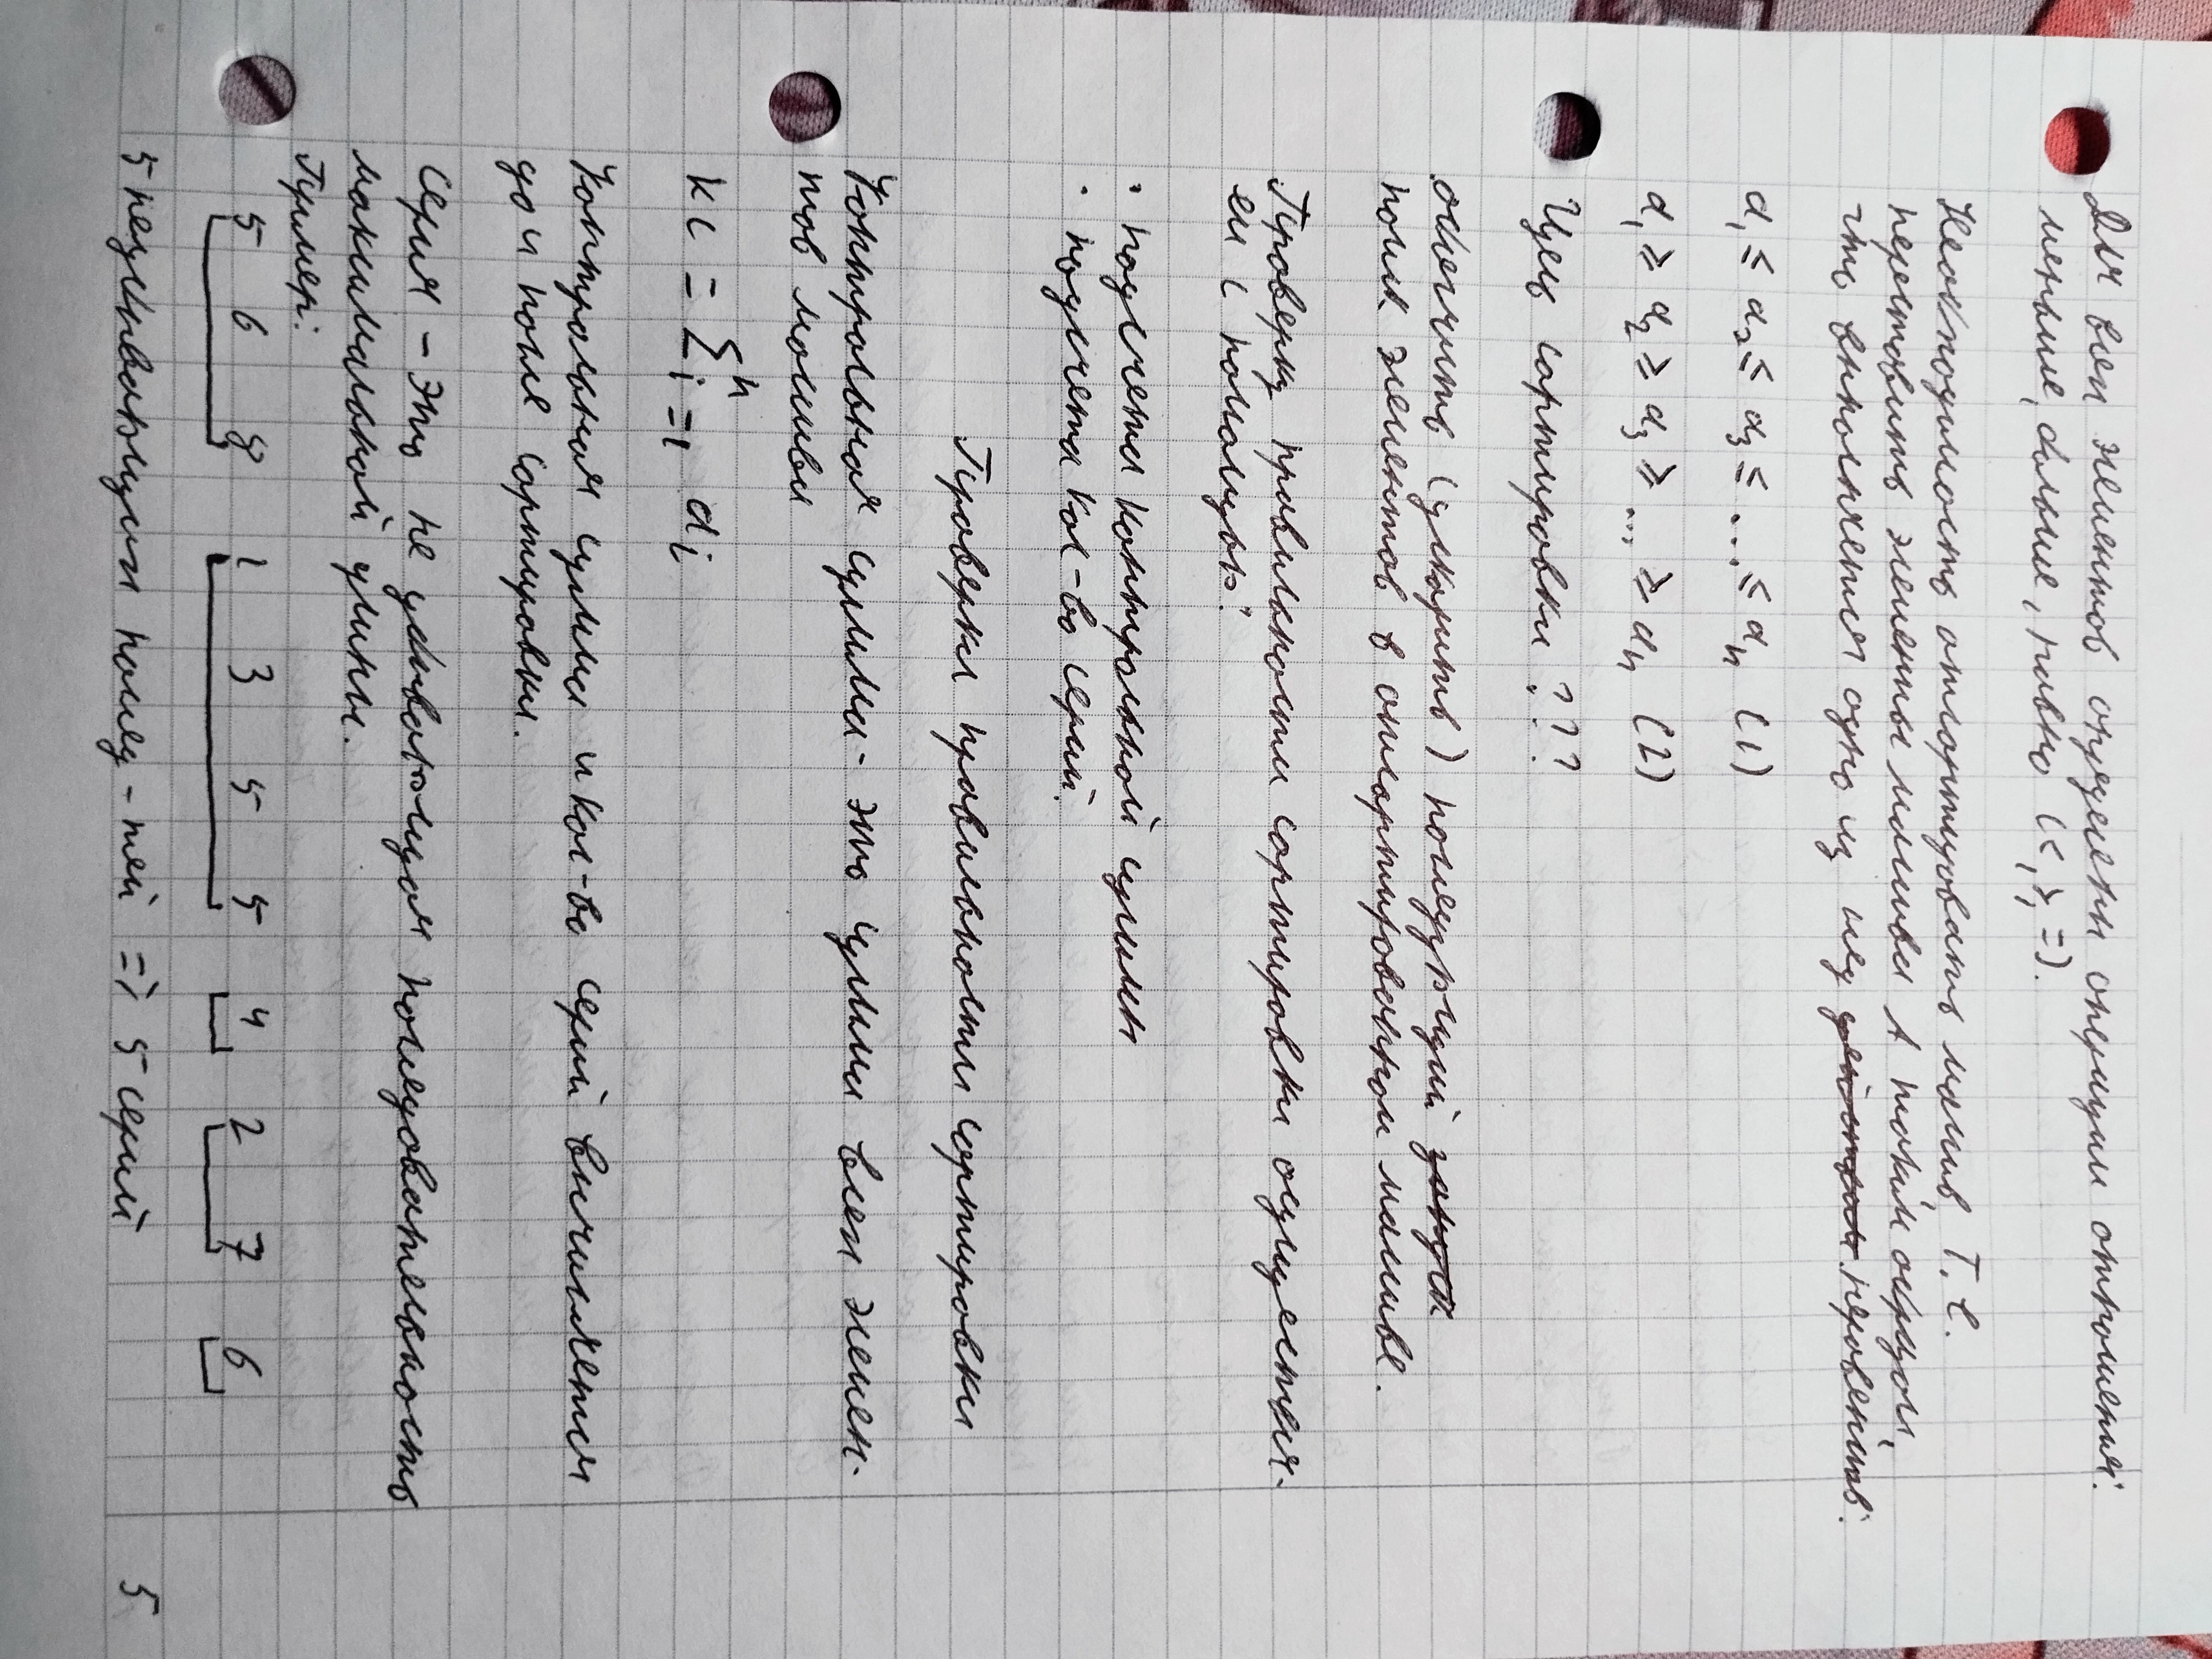 Для всех элементов определены операции отношения:
меньше, больше, равно (<, >, =).
Необходимость отсортировать массив, т.е.
переставить элементы массива A таким образом,
что выполняется одно из след действий. неравенств:
a₁ ≤ a₂ ≤ a₃ ≤ ... ≤ aₙ (1)
a₁ ≥ a₂ ≥ a₃ ≥ ... ≥ aₙ (2)
Цель сортировки ???
облегчить (ускорить) последующий запуск
поиск элементов в отсортированном массиве.
Проверку правильности сортировки осуществля-
ем с помощью:
· подсчета контрольной суммы
· подсчета кол-во серий.
Проверка правильности сортировки
Контрольная сумма - это сумма всех элемен-
тов массива
КС = Σⁿᵢ₌₁ aᵢ
Контрольная сумма и кол-во серий вычисляется
до и после сортировки.
Серия - это не убывающая последовательность
максимальной длины.
Пример:
5 6 8 1 3 5 5 4 2 7 6
5 неубывающих послед-тей => 5 серий
5